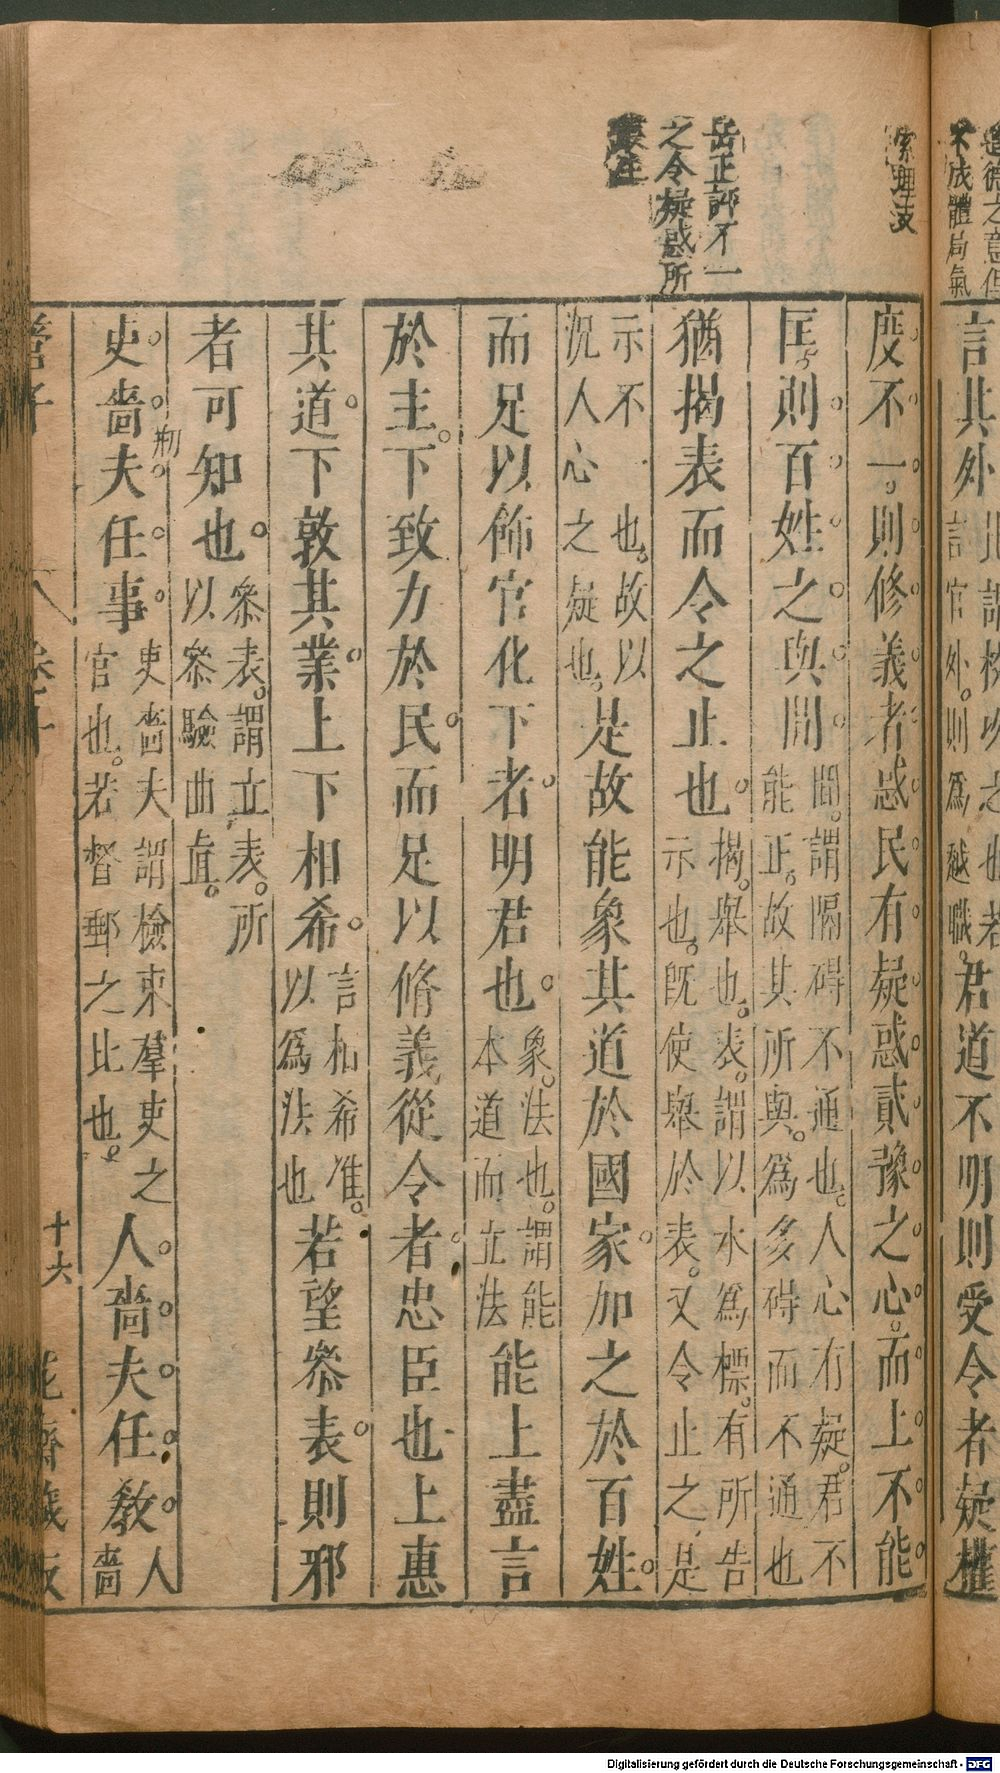 道德之意但
不成體局氣
言其外
言官外則爲越職
君道不明則受令者疑權
索理泼
度不一則修義者惑民有疑惑貳豫之心而上不能
匡則百姓之與間間謂隔碍不通也人心有疑君不
能正故其所與爲多碍而不通也
岳正評不一
之令疑惑所
猶揭表而令之止也揭舉也表謂以水爲標有所告
示也旣使舉於表又令止之是
示不也故以
況人心之疑也
是故能象其道於國家加之於百姓
而足以飾官化下者明君也象法也謂能
本道而立法
能上盡言
於主下致力於民而足以脩義從令者忠臣也上惠
其道下敦其業上下相希言相希准
以爲法也
若望叅表則邪
者可知也叅表謂立表所
以叅驗曲直
吏嗇夫任事吏嗇夫謂檢束羣吏之
官也若督郵之比也
人嗇夫任敎人
嗇
管子
卷十
十六
花齋藏板
Digitalisierung gefördert durch die Deutsche Forschungsgemeinschaft - DFG